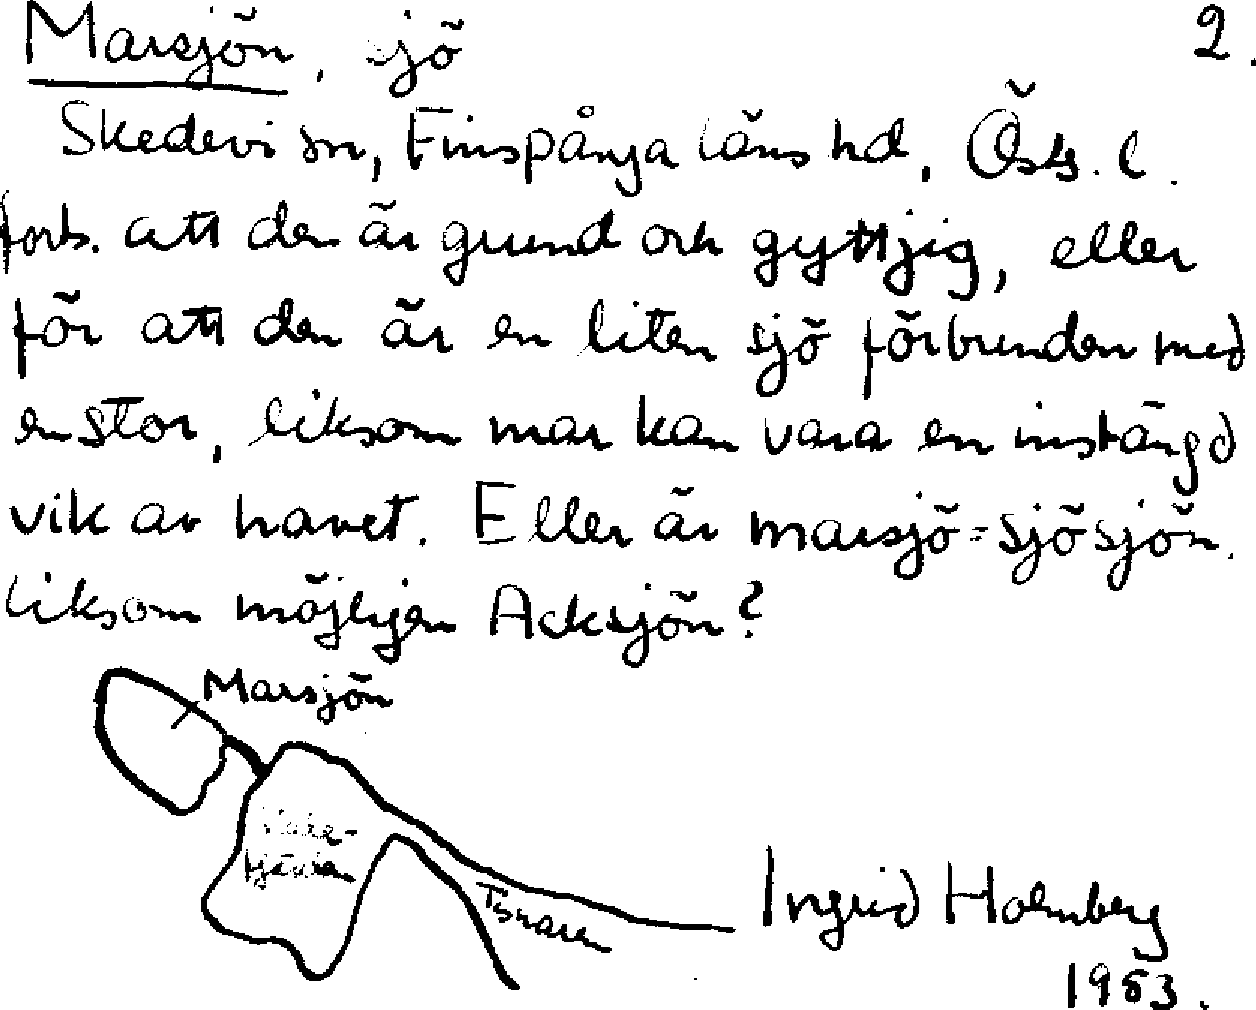 Marsjön, sjö 2.
Skedevi sn, Finspånga läns hd, Östg. l.
forts. att den är grund och gyttjig, eller
för att den är en liten sjö förbunden med
en stor, liksom mar kan vara en instängd
vik av havet. Eller är marsjö = sjösjön.
liksom möjligen Acksjön?
Marsjön
Tisnaren
Ingrid Holmberg